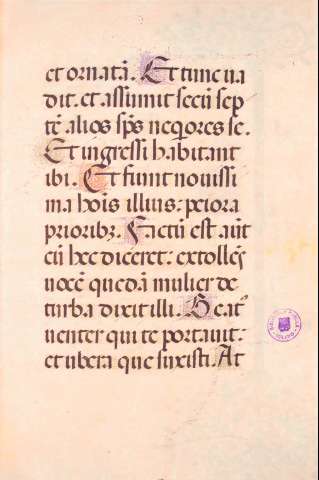 et ornatā. Et tunc ua
dit. et assumit secū sep
tē alios sp̄s neq̇ores se.
Et ingressi hābitant
ibi. Et fiunt nouissi
ma hoīs illius: peiora
priorib⁊. Factū est aūt
cū hec diceret: extollēs
uocē quedā mulier de
turba dixit illi. Beat⁹
uenter qui te portauit:
et ubera que suxisti. At